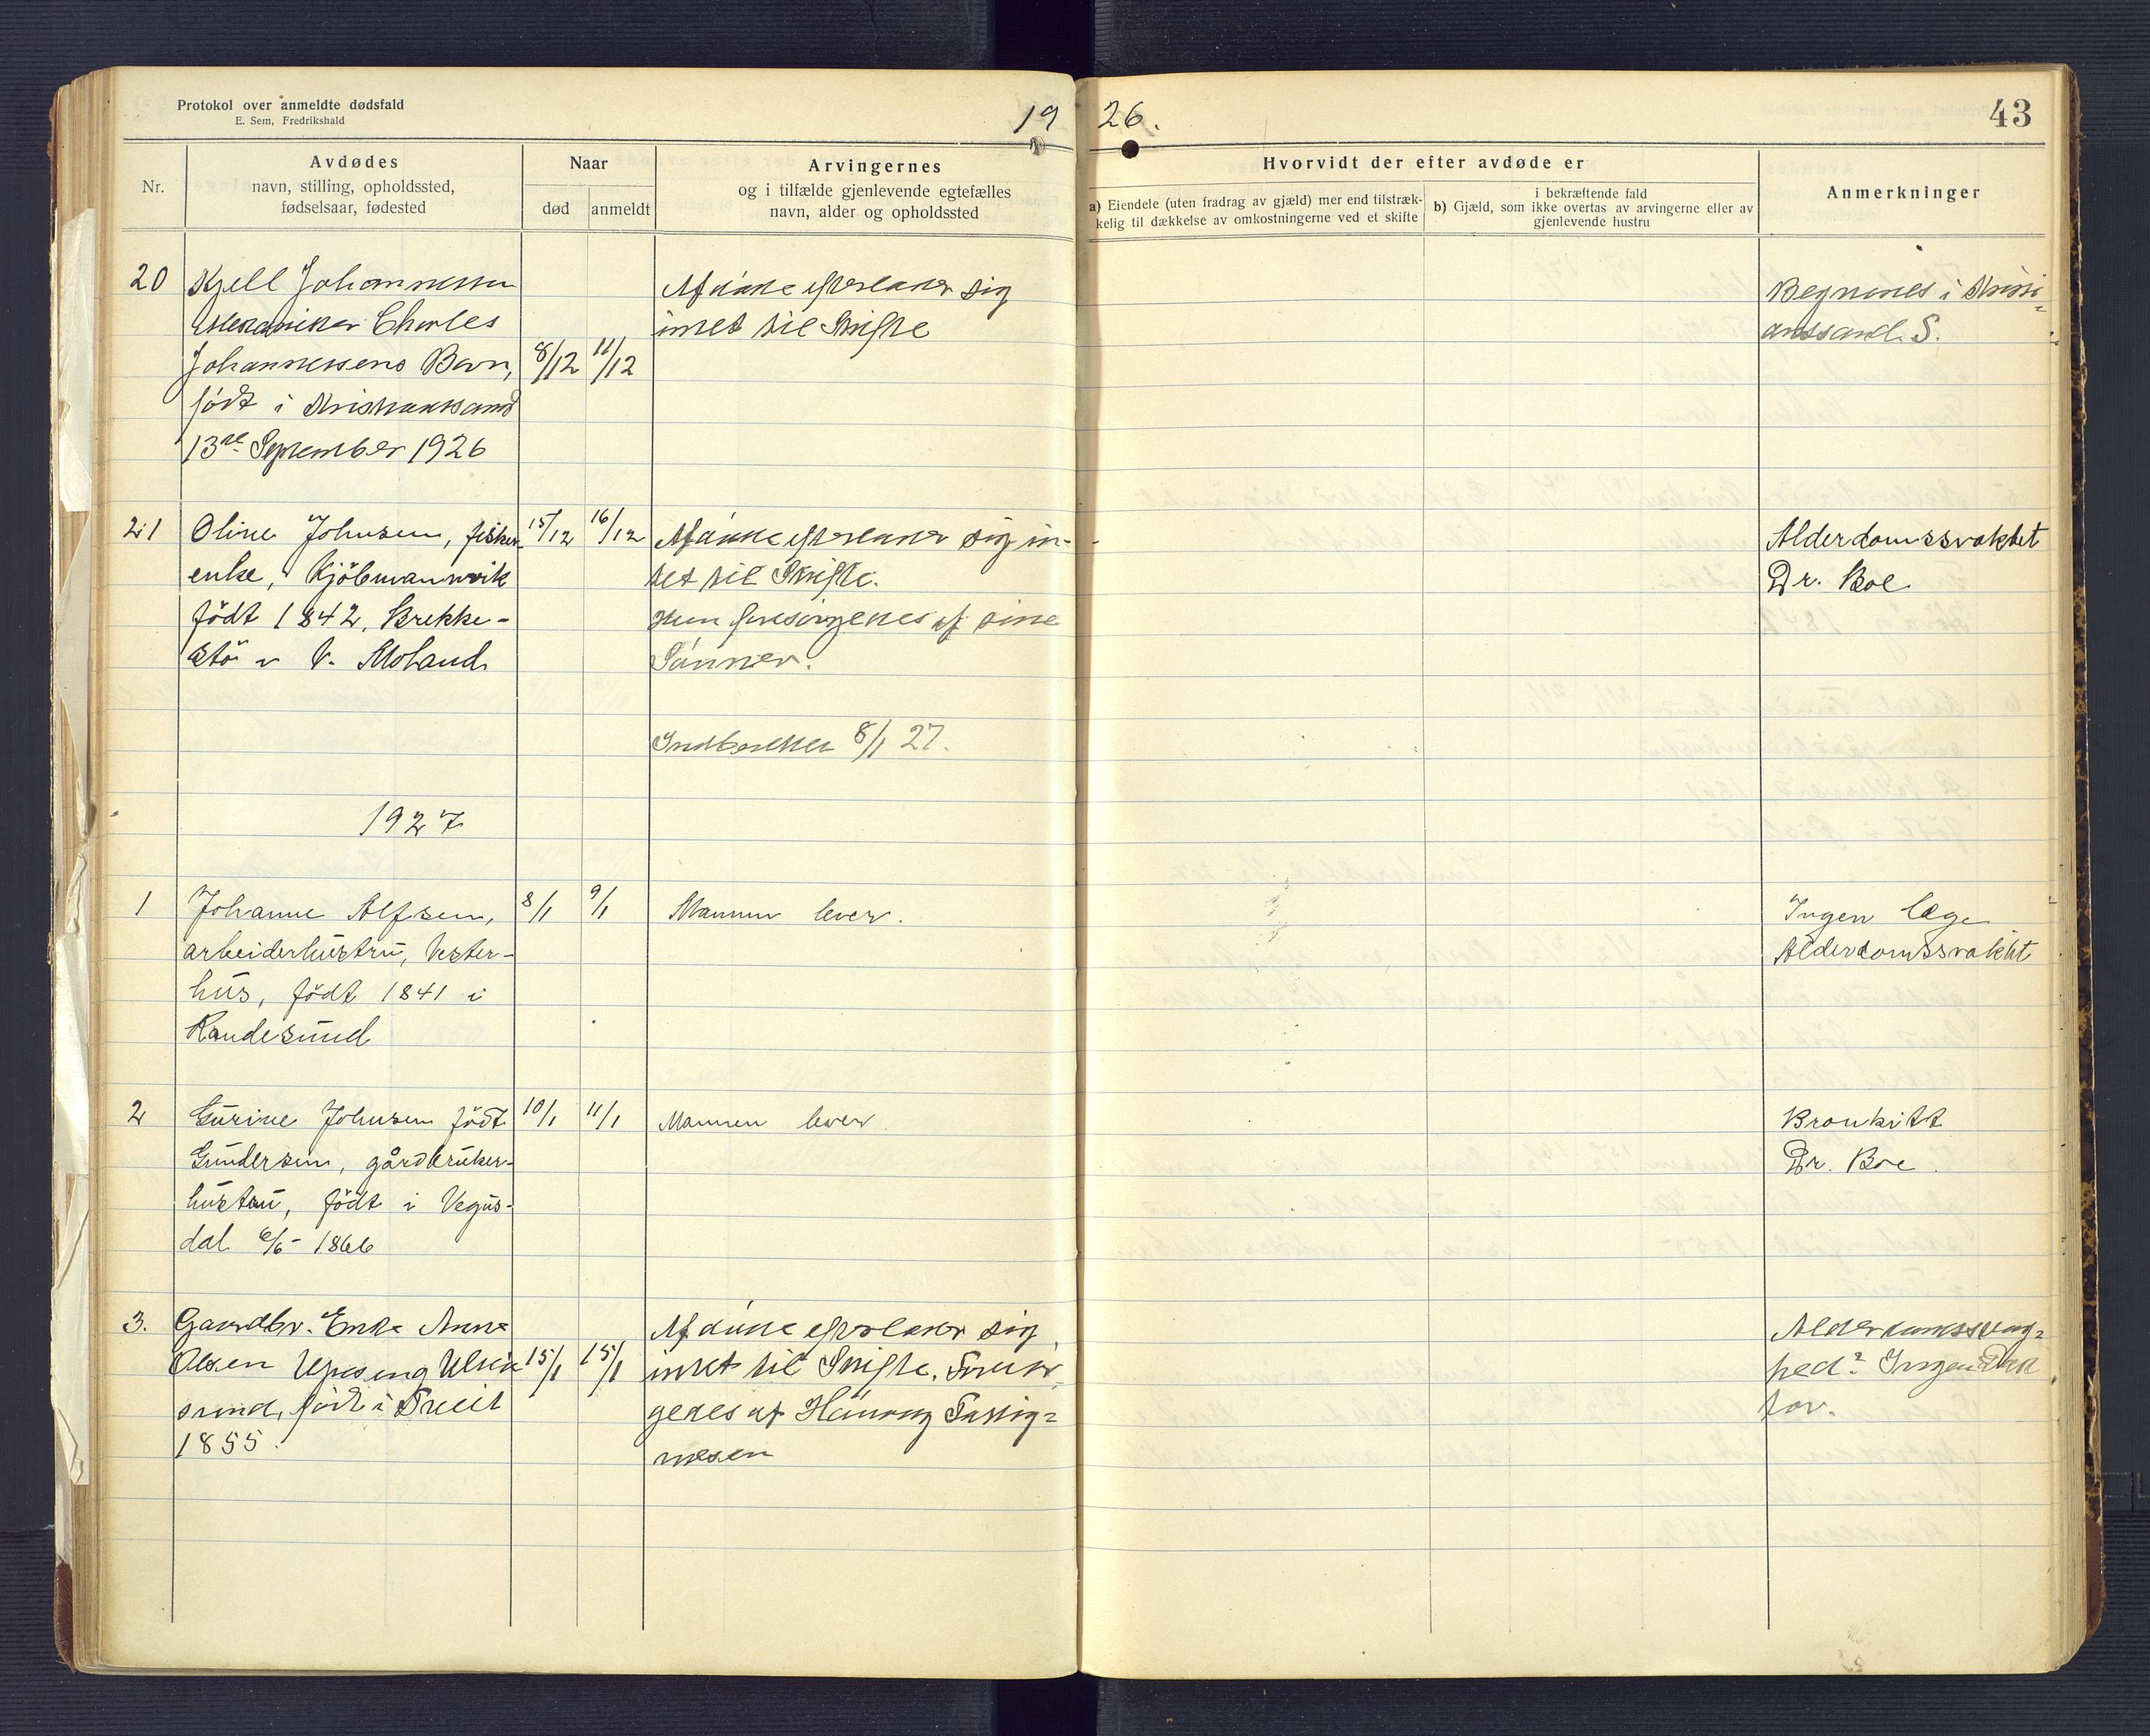 Protokol over anmeldte dødsfald
E. Sem, Fredrikshald
19 26.
43
Nr.
Avdødes
navn, stilling, opholdssted,
fødselsaar, fødested
Naar
død
anmeldt
Arvingernes
og i tilfælde gjenlevende egtefælles
navn, alder og opholdssted
Hvorvidt der efter avdøde er
a) Eiendele (uten fradrag av gjæld) mer end tilstræk-
kelig til dækkelse av omkostningerne ved et skifte
i bekræftende fald
b) Gjæld, som ikke overtas av arvingerne eller av
gjenlevende hustru
Anmerkninger
20
Kjell Johannessen
Mekaniker Charles
Johannessens Barn,
født i Kristianssand
13de September 1926
8/12
11/12
Afdøde efterlader sig
intet til Skifte
Begraves i Kristi=
anssand. S.
21
Oline Johnsen, fisker-
enke, Kjöbmannvik
födt 1842, Brekke-
stö V. Moland
15/12
16/12
Afdøde efterlader sig in-
tet til Skifte.
Hun forsørgedes af sine
Sønner.
Indberettet 8/1 27.
Alderdomssvakhet
Dr. Boe
1927
1
Johanne Alfsen,
arbeiderhustru, Vester-
hus, födt 1841 i
Randesund
8/1
9/1
Mannen lever.
Ingen læge
Alderdomssvakhet
2
Gurine Johnsen födt
Gundersen, gårdbruker-
hustru, födt i Vegus-
dal 6/5- 1866
10/1
11/1
Mannen lever
Bronkitt
Dr. Boe.
3.
Gaardbr. Enke Anna
Olsen
sund, født i
1855.
15/1
15/1
Afdøde efterlader sig
intet til Skifte. Forsør
gedes af
Alderdomssvag=
hed? Ingen Dok
tor.